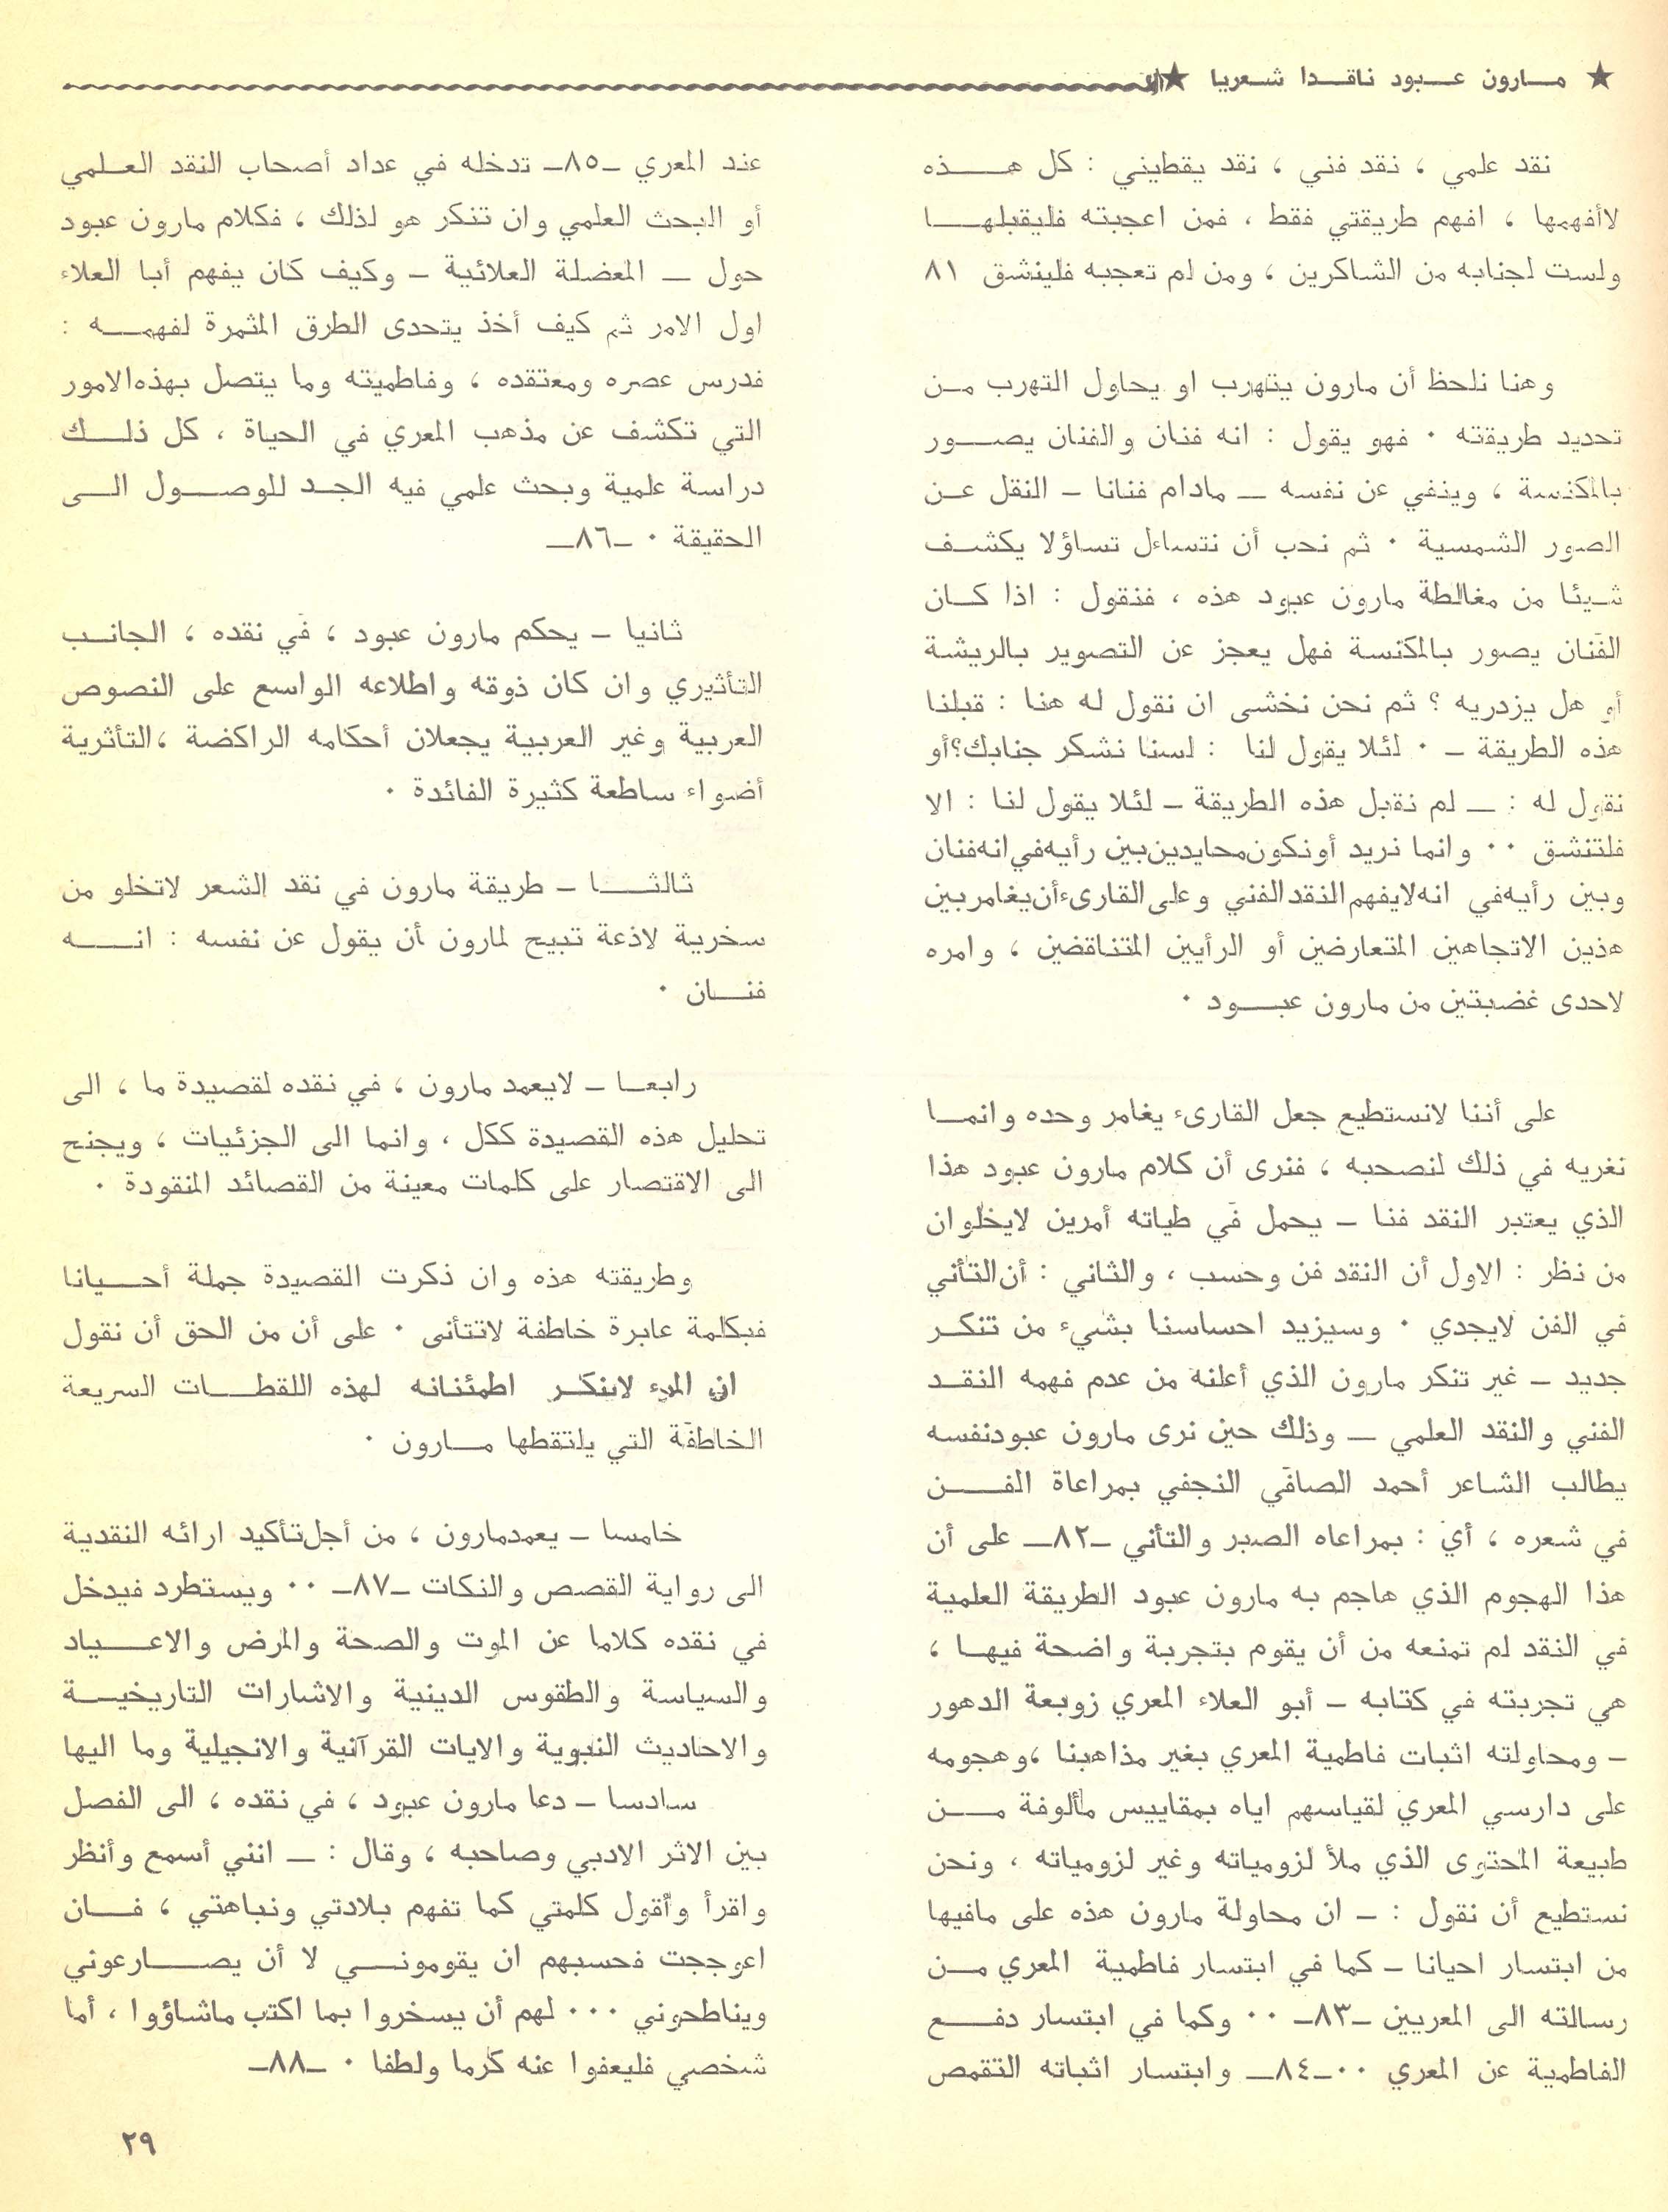 ★ مارون عبود ناقدا شعريا ★
نقد علمي ، نقد فني ، نقد يقطيني : كل هذه
لاأفهمها ، افهم طريقتي فقط ، فمن اعجبته فليقبلها
ولست لجنابه من الشاكرين ، ومن لم تعجبه فلينشق ٨١
وهنا نلحظ أن مارون يتهرب او يحاول التهرب من
تحديد طريقته ٠ فهو يقول : انه فنان والفنان يصور
بالمكنسة ، وينفي عن نفسه ــ مادام فنانا ــ النقل عن
الصور الشمسية ٠ ثم نحب أن نتساءل تساؤلا يكشف
شيئا من مغالطة مارون عبود هذه ، فنقول : اذا كان
الفنان يصور بالمكنسة فهل يعجز عن التصوير بالريشة
أو هل يزدريه ؟ ثم نحن نخشى ان نقول له هنا : قبلنا
هذه الطريقة ــ ٠ لئلا يقول لنا : لسنا نشكر جنابك؟أو
نقول له : ــ لم نقبل هذه الطريقة ــ لئلا يقول لنا : الا
فلتنشق ٠٠ وانما نريد أونكون محايدين بين رأيه في انه فنان
وبين رأيه في انه لايفهم النقد الفني وعلى القارىء أن يغامر بين
هذين الاتجاهين المتعارضين أو الرأيين المتناقضين ، وامره
لاحدى غضبتين من مارون عبود ٠
على أننا لانستطيع جعل القارىء يغامر وحده وانما
نغريه في ذلك لنصحبه ، فنرى أن كلام مارون عبود هذا
الذي يعتبر النقد فنا ــ يحمل في طياته أمرين لايخلوان
من نظر : الاول أن النقد فن وحسب ، والثاني : أن التأني
في الفن لايجدي ٠ وسيزيد احساسنا بشيء من تنكر
جديد ــ غير تنكر مارون الذي أعلنه من عدم فهمه النقد
الفني والنقد العلمي ــ وذلك حين نرى مارون عبودنفسه
يطالب الشاعر أحمد الصافي النجفي بمراعاة الفن
في شعره ، أي : بمراعاه الصبر والتأني ــ٨٢ــ على أن
هذا الهجوم الذي هاجم به مارون عبود الطريقة العلمية
في النقد لم تمنعه من أن يقوم بتجربة واضحة فيها ،
هي تجربته في كتابه ــ أبو العلاء المعري زوبعة الدهور
ــ ومحاولته اثبات فاطمية المعري بغير مذاهبنا ،وهجومه
على دارسي المعري لقياسهم اياه بمقاييس مألوفة من
طبيعة المحتوى الذي ملأ لزومياته وغير لزومياته ، ونحن
نستطيع أن نقول : ــ ان محاولة مارون هذه على مافيها
من ابتسار احيانا ــ كما في ابتسار فاطمية المعري من
رسالته الى المعريين ــ٨٣ــ ٠٠ وكما في ابتسار دفع
الفاطمية عن المعري ٠٠ــ٨٤ــ وابتسار اثباته التقمص
عند المعري ــ٨٥ــ تدخله في عداد أصحاب النقد العلمي
أو البحث العلمي وان تنكر هو لذلك ، فكلام مارون عبود
حول ــ المعضلة العلائية ــ وكيف كان يفهم أبا العلاء
اول الامر ثم كيف أخذ يتحدى الطرق المثمرة لفهمه :
فدرس عصره ومعتقده ، وفاطميته وما يتصل بهذه الامور
التي تكشف عن مذهب المعري في الحياة ، كل ذلك
دراسة علمية وبحث علمي فيه الجد للوصول الى
الحقيقة ٠ ــ٨٦ــ
ثانيا ــ يحكم مارون عبود ، في نقده ، الجانب
التأثيري وان كان ذوقه واطلاعه الواسع على النصوص
العربية وغير العربية يجعلان أحكامه الراكضة ،التأثرية
أضواء ساطعة كثيرة الفائدة ٠
ثالثا ــ طريقة مارون في نقد الشعر لاتخلو من
سخرية لاذعة تبيح لمارون أن يقول عن نفسه : انه
فنان ٠
رابعا ــ لايعمد مارون ، في نقده لقصيدة ما ، الى
تحليل هذه القصيدة ككل ، وانما الى الجزئيات ، ويجنح
الى الاقتصار على كلمات معينة من القصائد المنقودة ٠
وطريقته هذه وان ذكرت القصيدة جملة أحيانا
فبكلمة عابرة خاطفة لاتتأنى ٠ على أن من الحق أن نقول
ان المرء لاينكر اطمئنانه لهذه اللقطات السريعة
الخاطفة التي يلتقطها مارون ٠
خامسا ــ يعمدمارون ، من أجل تأكيد ارائه النقدية
الى رواية القصص والنكات ــ٨٧ــ ٠٠ ويستطرد فيدخل
في نقده كلاما عن الموت والصحة والمرض والاعياد
والسياسة والطقوس الدينية والاشارات التاريخية
والاحاديث النبوية والايات القرآنية والانجيلية وما اليها
سادسا ــ دعا مارون عبود ، في نقده ، الى الفصل
بين الاثر الادبي وصاحبه ، وقال : ــ انني أسمع وأنظر
واقرأ وأقول كلمتي كما تفهم بلادتي ونباهتي ، فان
اعوججت فحسبهم ان يقوموني لا أن يصارعوني
ويناطحوني ٠٠٠ لهم أن يسخروا بما اكتب ماشاؤوا ، أما
شخصي فليعفوا عنه كرما ولطفا ٠ ــ٨٨ــ
٢٩